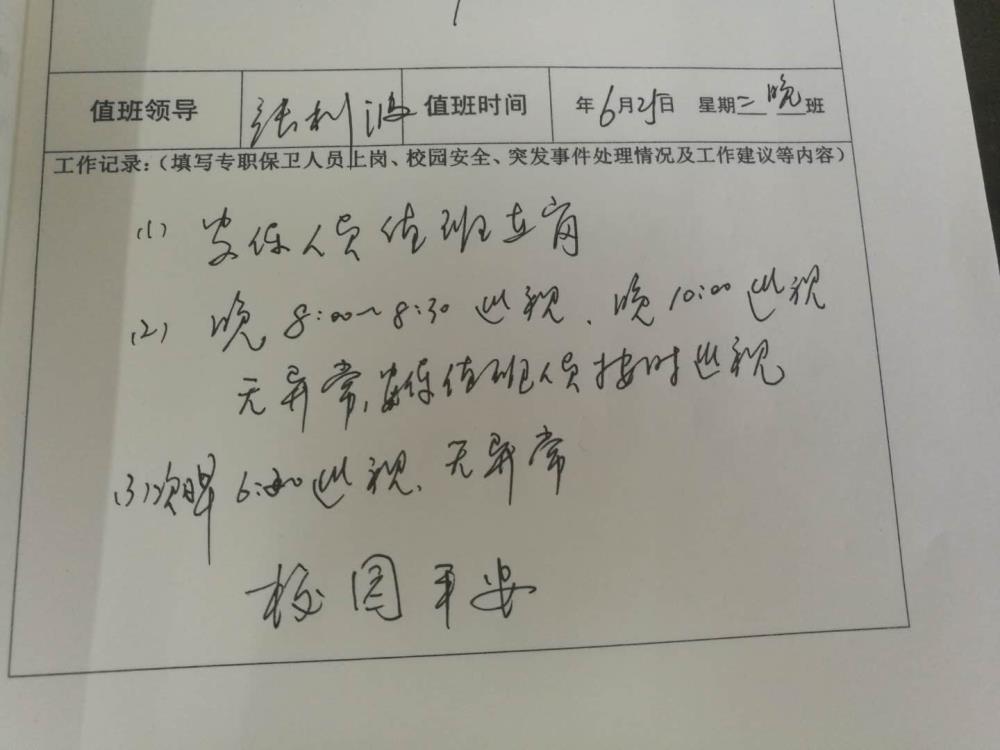 值班领导 张利波 值班时间 年6月25日 星期二 晚班
工作记录:(填写专职保卫人员上岗、校园安全、突发事件处理情况及工作建议等内容)
(1) 安保人员值班在岗
(2) 晚8:00~8:30巡视、晚10:00巡视
无异常,安保值班人员按时巡视
(3) 次日早6:20巡视、无异常
校园平安